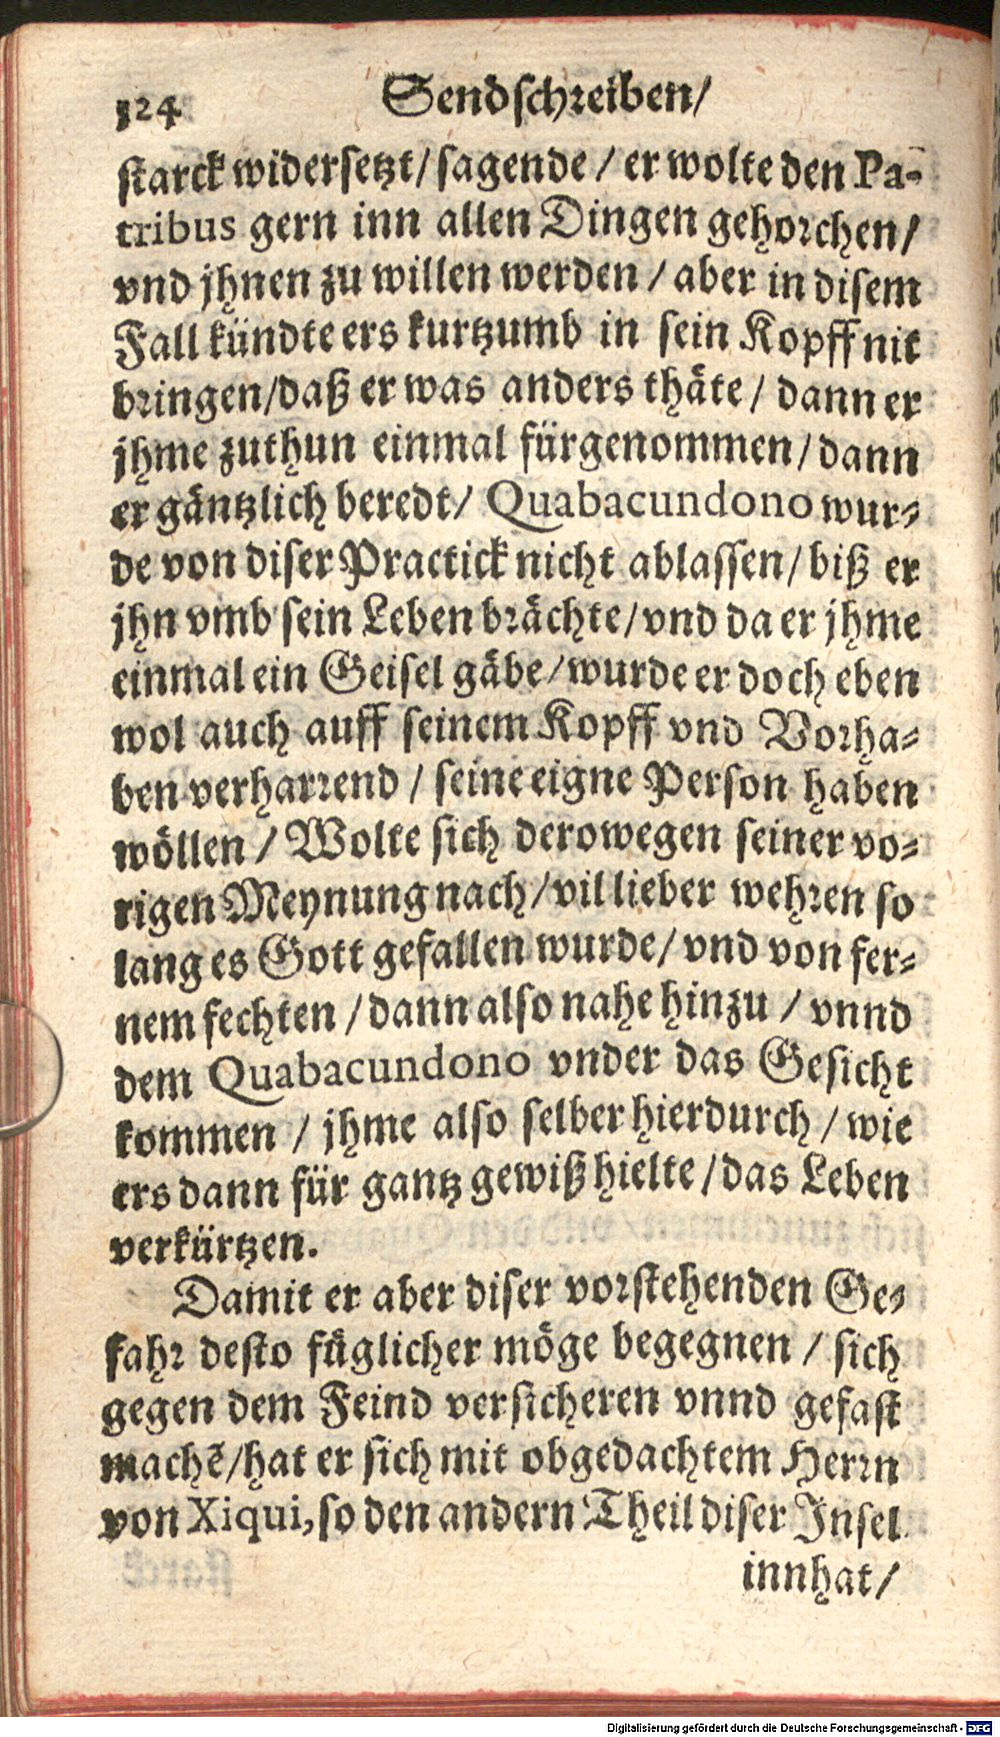 124 Sendschreiben/
starck widersetzt/ sagende / er wolte den Pa-
tribus gern inn allen Dingen gehorchen/
vnd jhnen zu willen werden / aber in disem
Fall kündte ers kurtzumb in sein Kopff nit
bringen/daß er was anders thäte / dann er
jhme zuthun einmal fürgenommen/ dann
er gäntzlich beredt/ Quabacundono wur-
de von diser Practick nicht ablassen/ biß er
jhn vmb sein Leben brächte/vnd da er jhme
einmal ein Geisel gäbe/wurde er doch eben
wol auch auff seinem Kopff vnd Vorha-
ben verharrend / seine eigne Person haben
wöllen / Wolte sich derowegen seiner vo-
rigen Meynung nach/vil lieber wehren so
lang es Gott gefallen wurde/ vnd von fer-
nem fechten / dann also nahe hinzu / vnnd
dem Quabacundono vnder das Gesicht
kommen / jhme also selber hierdurch / wie
ers dann für gantz gewiß hielte/das Leben
verkürtzen.
Damit er aber diser vorstehenden Ge-
fahr desto füglicher möge begegnen / sich
gegen dem Feind versicheren vnnd gefast
machẽ/hat er sich mit obgedachtem Herrn
von Xiqui, so den andern Theil diser Insel
innhat/
Digitalisierung gefördert durch die Deutsche Forschungsgemeinschaft - DFG